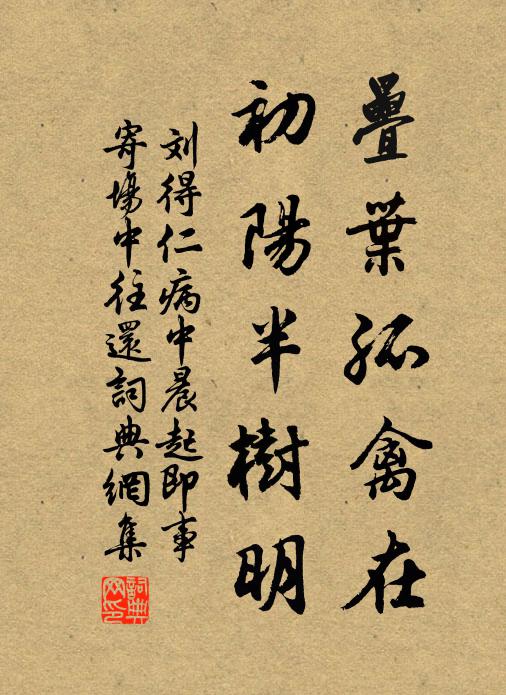 疊葉孤禽在
初陽半樹明
刘得仁病中晨起即事
寄場中往還詞典網集
詞典网印